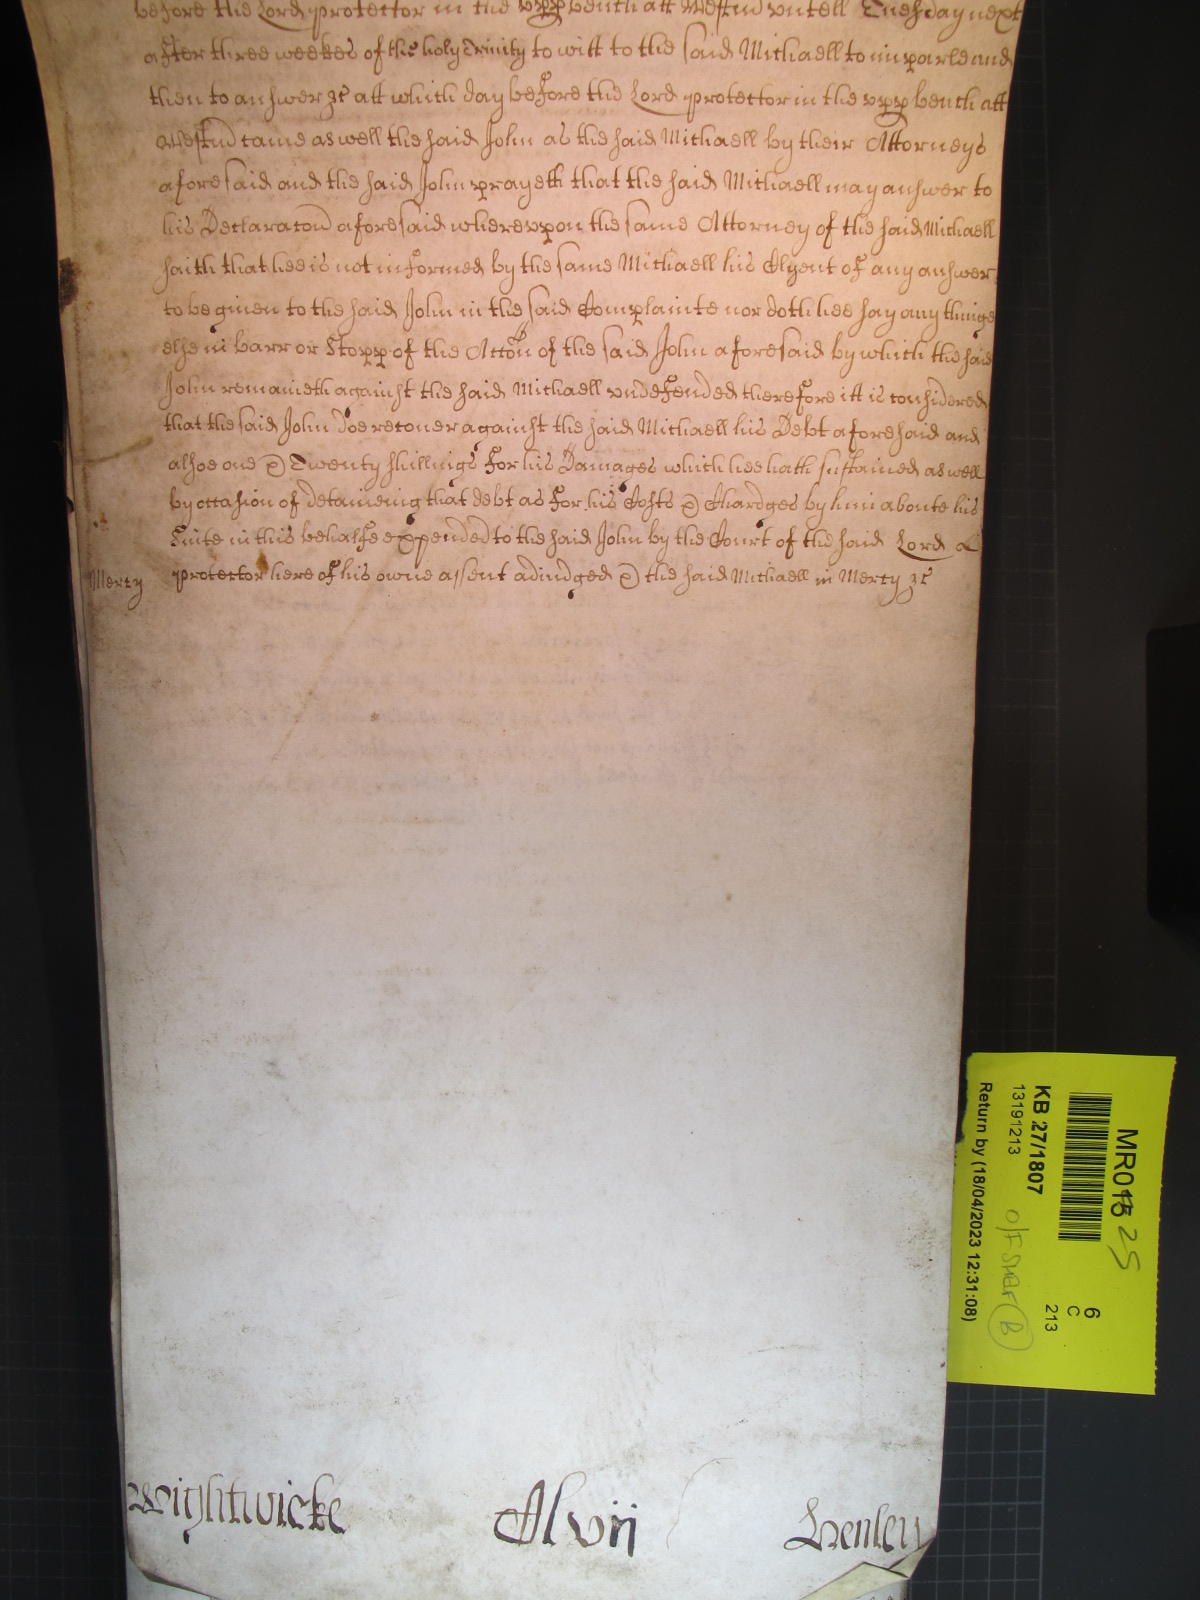 before the Lord protector in the upp bench att Westmr untill Tuesday next
after three weekes of the holy Trinity to witt to the said Michaell to imparle and
then to answer &c att which day before the Lord protector in the upp bench att
Westmr came as well the said John as the said Michaell by their Attorneys
aforesaid and the said John prayeth that the said Michaell may answer to
his Declaracon aforesaid whereupon the same Attorney of the said Michaell
saith that hee is not informed by the same Michaell his Clyent of any answer
to be given to the said John in the said Complainte nor doth hee say any thinge
else in barr or Stopp of the Accon of the said John aforesaid by which the said
John remaineth against the said Michaell undefended therefore itt is considered
that the said John doe recover against the said Michaell his Debt aforesaid and
alsoe one & Twenty shillings for his Damages which hee hath sustained as well
by occasion of detaineing that debt as for his Costs & Chardges by him aboute his
Suite in this behalfe expended to the said John by the Court of the said Lord
Mercy protector here of his owne assent adiudged & the said Michaell in Mercy &c
Wightwicke Clvii Henley
MR015 25
KB 27/1807
13191213
Return by (18/04/2023 12:31:08)
6
C
213
O/F SHELF B